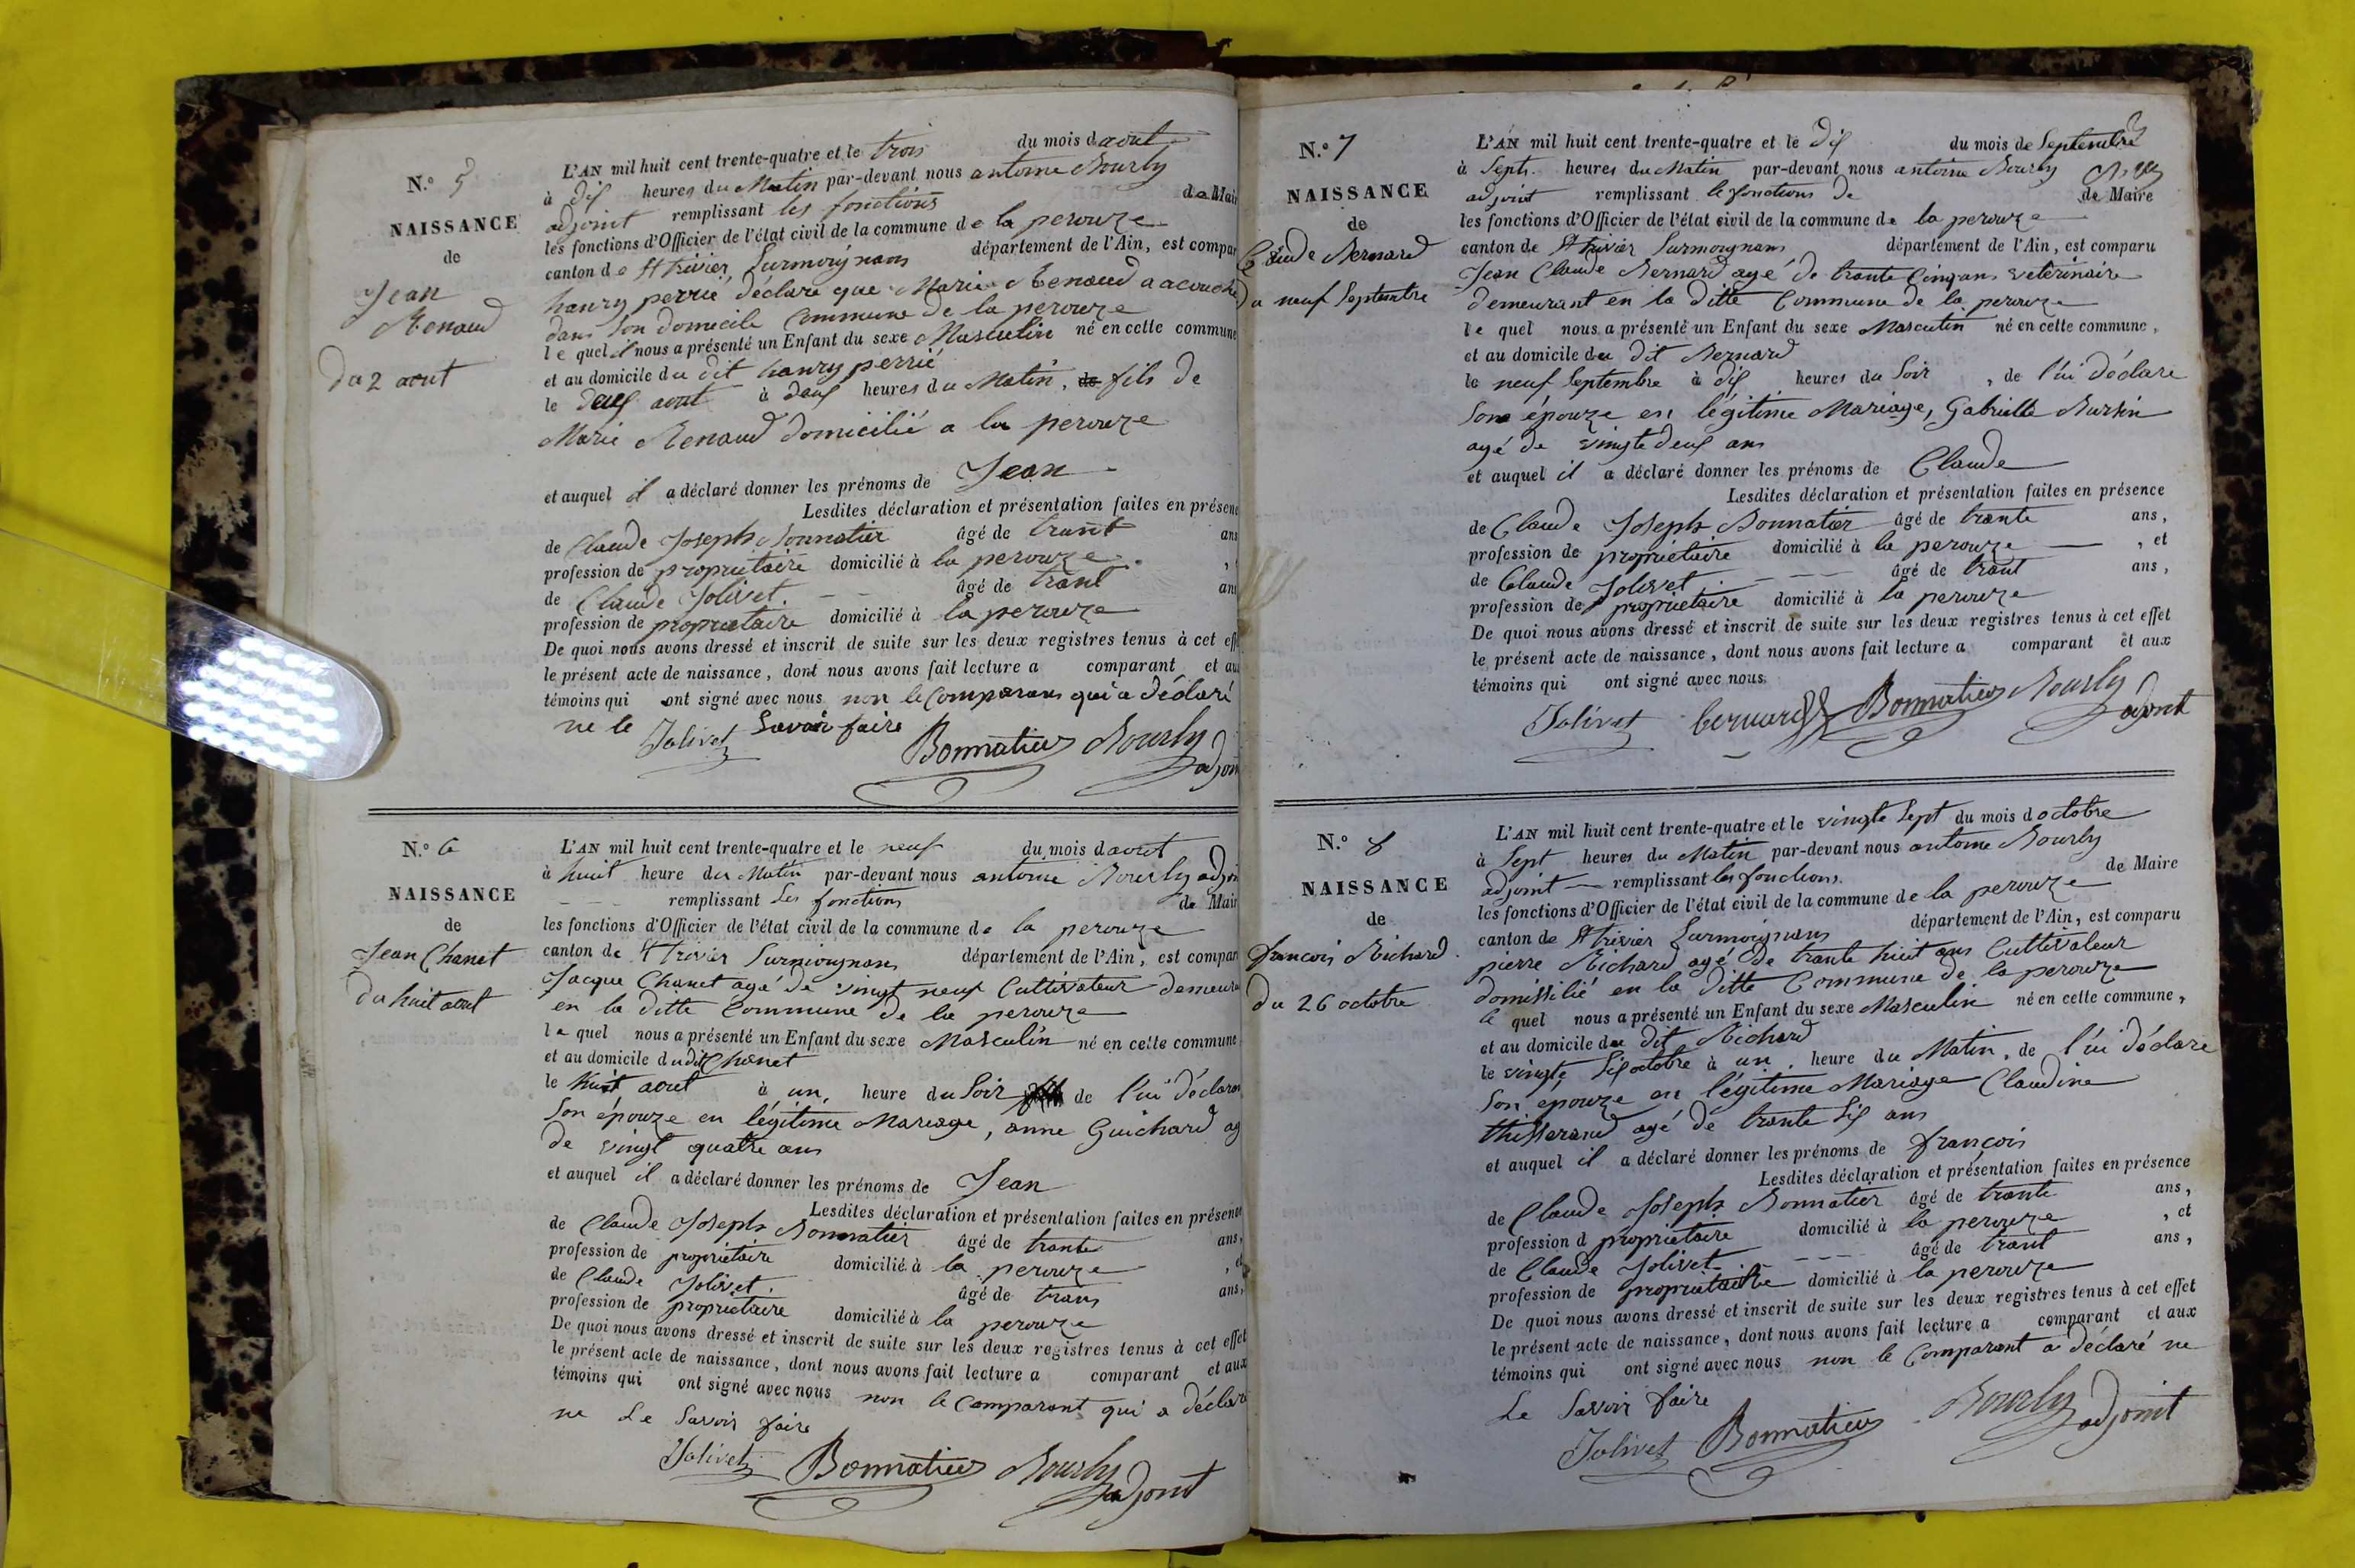 N.° 5
NAISSANCE
de
Jean
Renaud
du 2 aout
L'AN mil huit cent trente-quatre et le trois du mois d aout
à dix heures du Matin par-devant nous antoine Bourly
adjoint remplissant les fonctions de Mair
les fonctions d'Officier de l'état civil de la commune de la perouze
canton de St trivier Surmoignans département de l'Ain, est compar
hanry perrié déclare que Marie Renaud a acouché
dans Son domicile Commune de la perouze
le quel il nous a présenté un Enfant du sexe Masculin né en cette commune
et au domicile du dit hanry perrié
le deux aout à deux heures du Matin, de fils de
Marie Renaud domicilié a la perouze
et auquel il a déclaré donner les prénoms de Jean
Lesdites déclaration et présentation faites en présenc
de Claude Joseph Bonnatier âgé de trant ans
profession de propriétaire domicilié à la perouze ,
de Claude Jolivet. âgé de trant ans
profession de propriétaire domicilié à la perouze
De quoi nous avons dressé et inscrit de suite sur les deux registres tenus à cet eff
le présent acte de naissance, dont nous avons fait lecture a comparant et au
témoins qui ont signé avec nous non le Comparans qui a déclaré
ne le Savoir faire
Jolivet Bonnatier Bourly
adjoin
N.° 6
NAISSANCE
de
Jean Chanet
du huit aout
L'AN mil huit cent trente-quatre et le neuf du mois d aout
à huit heure du Matin par-devant nous antoine Bourly adjoi
remplissant Les fonctions de Mair
les fonctions d'Officier de l'état civil de la commune de la perouze
canton de St trivier Surmoignans département de l'Ain, est compar
Jacque Chanet agé de vingt neuf Cultivateur demeura
en la ditte Commune de la perouze
le quel nous a présenté un Enfant du sexe Masculin né en cette commune
et au domicile dudit Chanet
le huit aout à un, heure du Soir de l'ui déclaran
Son épouze en légitime Mariage, anne Guichard ag
de vingt quatre ans
et auquel il a déclaré donner les prénoms de Jean
Lesdites déclaration et présentation faites en présence
de Claude Joseph Bonnatier âgé de trante ans,
profession de propriétaire domicilié à la perouze , et
de Claude Jolivet. âgé de trans ans,
profession de propriétaire domicilié à la perouze
De quoi nous avons dressé et inscrit de suite sur les deux registres tenus à cet effet
le présent acte de naissance, dont nous avons fait lecture a comparant et aux
témoins qui ont signé avec nous non le Comparant qui a déclaré
ne Le Savoir faire
Jolivet Bonnatier Bourly
adjoint
N.° 7
NAISSANCE
de
Claude Bernard
Du neuf Septembre
L'AN mil huit cent trente-quatre et le dix du mois de Septembre
à Sept. heures du Matin par-devant nous antoine Bourly
adjoint remplissant le fonctions de de Maire
les fonctions d'Officier de l'état civil de la commune de la perouze
canton de St trivier Surmoignans département de l'Ain, est comparu
Jean Claude Bernard agé de trante Cinq ans veterinaire
demeurant en la ditte Commune de la perouze
le quel nous a présenté un Enfant du sexe Masculin né en cette commune,
et au domicile du dit Bernard
le neuf Septembre à dix heures du Soir , de l'ui déclare
Son épouze en légitime Mariage, Gabrielle Bursin
agé de vingte deux ans
et auquel il a déclaré donner les prénoms de Claude
Lesdites déclaration et présentation faites en présence
de Claude Joseph Bonnatier âgé de trante ans,
profession de propriétaire domicilié à la perouze , et
de Claude Jolivet. âgé de trant ans,
profession de propriétaire domicilié à la perouze
De quoi nous avons dressé et inscrit de suite sur les deux registres tenus à cet effet
le présent acte de naissance, dont nous avons fait lecture a comparant et aux
témoins qui ont signé avec nous
Jolivet bernard Bonnatier Bourly
adjoint
N.° 8
NAISSANCE
de
francois Richard
du 26 octobre
L'AN mil huit cent trente-quatre et le vingte Sept du mois d octobre
à Sept heures du Matin par-devant nous antoine Bourly
adjoint remplissant les fonctions. de Maire
les fonctions d'Officier de l'état civil de la commune de la perouze
canton de St trivier Surmoignans département de l'Ain, est comparu
pierre Richard agé de trante huit ans Cultivateur
domissilié en la ditte Commune de la perouze
le quel nous a présenté un Enfant du sexe Masculin né en cette commune,
et au domicile du dit Richard
le vingte Six octobre à un heure du Matin, de l'ui déclare
Son épouze en légitime Mariage Claudine
thisserand agé de trante Six ans
et auquel il a déclaré donner les prénoms de francois
Lesdites déclaration et présentation faites en présence
de Claude Joseph Bonnatier âgé de trante ans,
profession d propriétaire domicilié à la perouze , et
de Claude Jolivet âgé de trant ans,
profession de propriétaire domicilié à la perouze
De quoi nous avons dressé et inscrit de suite sur les deux registres tenus à cet effet
le présent acte de naissance, dont nous avons fait lecture a comparant et aux
témoins qui ont signé avec nous non le Comparant a déclaré ne
Le Savoir faire
Jolivet Bonnatier Bourly
adjoint